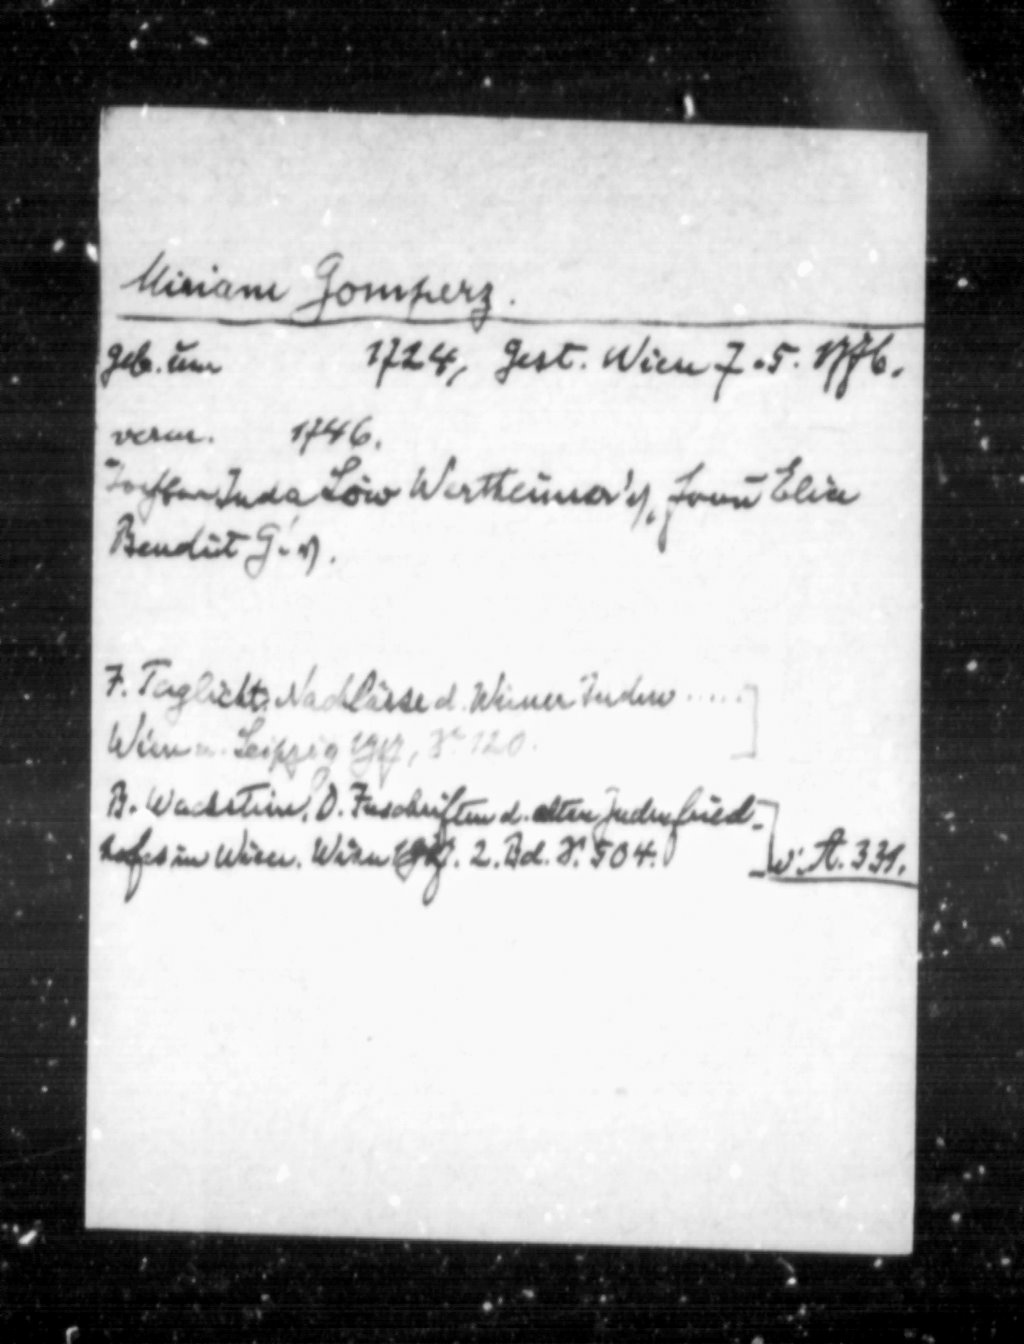 Miriam Gomperz.
geb. um 1724, gest. Wien 7.5. 1776.
verm. 1746.
Tochter Juda Löw Wertheimer's, Frau Elia
Bendit G.'s.
F. Taglicht, Nachlässe d. Wiener Juden .....
Wien u. Leipzig 1917, S. 120.
B. Wachstein, D. Inschriften d. alten Judenfried-
hofes in Wien. Wien 1917. 2. Bd. S. 504.
A. 331.